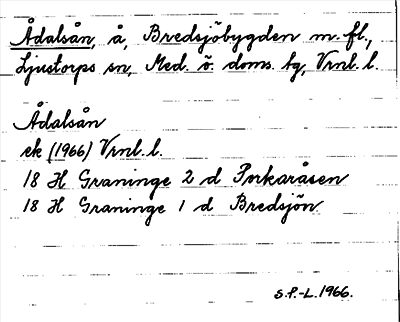 Ådalsån, å, Bredsjöbygden m. fl.,
Ljustorps sn, Med. ö. doms. tg, Vrnl. l.
Ådalsån
ek (1966) Vrnl. l.
18 H Graninge 2 d Porkaråsen
18 H Graninge 1 d Bredsjön
S.P.-L. 1966.